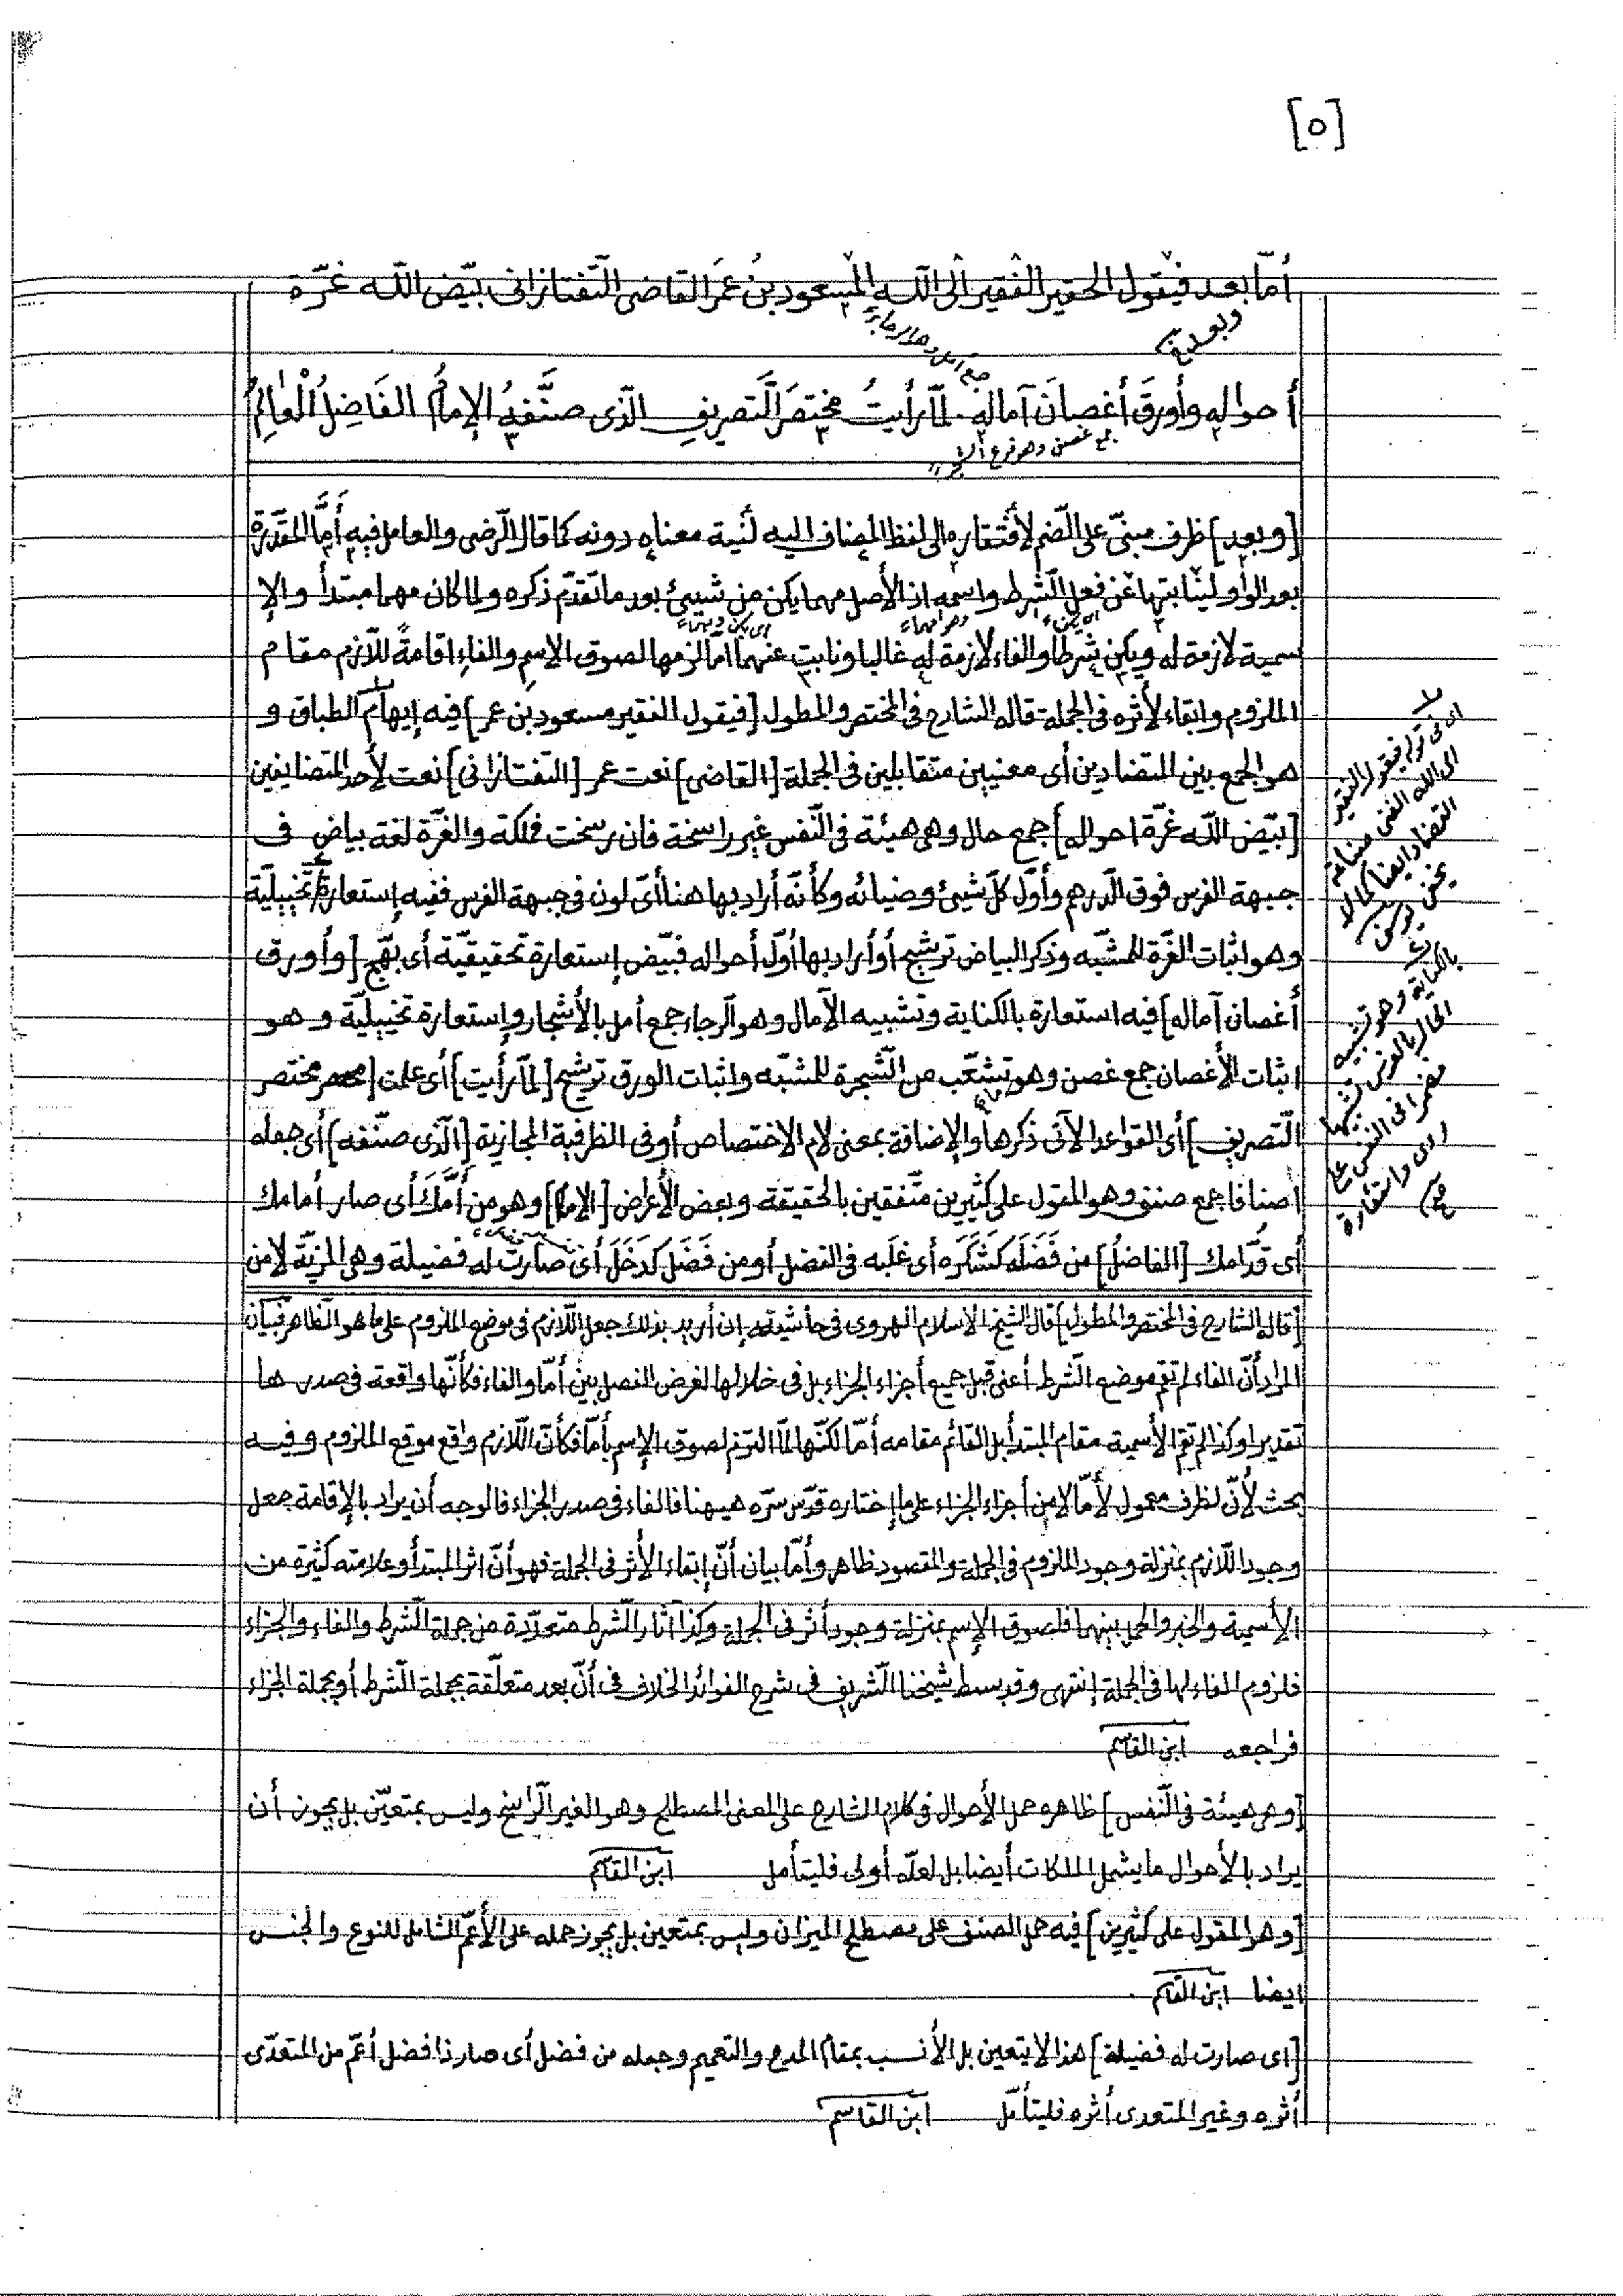 [٥]
أمّا بعد فيقول الحقير الفقير الى اللّه المسعود بن عمر القاضى التّفتازانى بيّض اللّه غرّة
وبعد
أحواله وأورق أغصان آماله. لمّا رأيتُ مختصرَ التّصريف الّذى صنّفهُ الإمامُ الفَاضِلُ الْعَالِمُ
جمع غصن وهو فرع
[وبعد] ظرف مبنىّ على الضّم لإفتقاره الى لفظ المضاف اليه لنية معناه دونه كما قال الرّضى والعامل فيه أمَّا المقدّرة
بعد الواو لينابتها عن فعل الشّرط واسمه اذ الأصل مهما يكن من شيئ بعد ما تقدّم ذكره ولما كان مهما مبتدأ والإ
سمية لازمة له ويكن شرطا والفاء لازمة له غالبا ونابت عنهما أمّا لزمها لصوق الإسم والفاء اقامةً للّازم مقام
الملزوم وابقاء لأثره فى الجملة قاله الشارح فى المختصر والمطول [فيقول الفقير مسعود بن عمر] فيه إيهام الطباق و
هو الجمع بين المتضادين أى معنيين متقابلين فى الجملة [القاضى] نعت عمر [التفتازانى] نعت لأحد المتضايفين
[بيّض اللّه غرّة احواله] جمع حال وهى هيئة فى النّفس غير راسخة فان رسخت فملكة والغرّة لغة بياض فى
جبهة الفرس فوق الدّرهم وأوّل كلّ شيئ وضيائه وكأنّه أراد بها هنا أىّ لون فى جبهة الفرس ففيه إستعارة تخييليّة
وهو اثبات الغرّة للمشبّه وذكر البياض ترشيح أو أراد بها أوّل أحواله فبيّض إستعارة تحقيقيّة أى بهّج [وأورق
أغصان آماله] فيه استعارة بالكناية وتشبيه الآمال وهو الرجاء جمع أمل بالأشجار وإستعارة تخييليّة وهو
اثبات الأغصان جمع غصن وهو تشعّب من الشّجرة للمشبّه واثبات الورق ترشيح [لمّا رأيت] أى علمت [مختصر
التّصريف] أى القواعد الآتى ذكرها والإضافة بمعنى لام الإختصاص أو فى الظرفية المجازية [الّذى صنّفه] أى جعله
اصنافا جمع صنف وهو المقول على كثيرين متّفقين بالحقيقة وبعض الأعراض [الإمام] وهو من أَمَّكَ أى صار أمامك
أى قُدّامك [الفاضل] من فَضَلَه كَشَكَرَه أى غلَبه فى الفضل أو من فَضَل كَدَخَلَ أى صارت له فضيلة وهى المزيّة لا من
[قاله الشارح فى المختصر والمطول] قال الشيخ الاسلام الهروى فى حاشيته إن أريد بذلك جعل اللّازم فى موضع الملزوم على ما هو الظاهر فبيان
المراد أنّ الفاء لم تقم موضع الشّرط أعنى قبل جميع أجزاء الجزاء بل فى خلالها لغرض الفصل بين أمّا والفاء فكأنّها واقعة فى صدرها
تقديرا وكذا لم تقم الأسمية مقام المبتدأ بل القائم مقامه أمّا لكنّها لمّا التزم لصوق الإسم بأمّا فكأنّ اللّازم واقع موقع الملزوم وفيه
بحث لأنّ الظرف معمول لأمّا لا من أجزاء الجزاء على ما إختاره قدّس سرّه هيهنا فالفاء فى صدر الجزاء فالوجه أن يراد بالإقامة جعل
وجود اللّازم بمنزلة وجود الملزوم فى الجملة والمقصود ظاهر وأمّا بيان أنّ إبقاء الأثر فى الجملة فهو أنّ اثر المبتدأ وعلامته كثيرة من
الأسمية والخبر والحمل بينهما فلصوق الإسم بمنزلة وجود أثر فى الجملة وكذا آثار الشّرط متعدّدة من جملة الشّرط والفاء والجزاء
فلزوم الفاء لها فى الجملة إنتهى وقد بسط شيخنا الشّريف فى شرح الفوائد الخلاف فى أنّ بعد متعلّقة بجملة الشّرط أو بجملة الجزاء
فراجعه ابن القاسم
[وهى هيئة فى النّفس] ظاهره حمل الأحوال فى كلام الشارح على المعنى المصطلح وهو الغير الرّاسخ وليس بمتعيّن بل يجوز أن
يراد بالأحوال ما يشمل الملكات أيضا بل لعلّه أولى فليتأمل ابن القاسم
[وهو المقول على كثيرين] فيه حمل الصنف على مصطلح الميزان وليس بمتعين بل يجوز حمله على الأعمّ الشامل للنوع والجنس
ايضا ابن القاسم
[اى صارت له فضيلة] هذا لا يتعين بل الأنسب بمقام المدح والتعميم وجعله من فضل أى صار ذا فضل أعمّ من المتعدّى
أثره وغير المتعدى أثره فليتأمّل ابن القاسم